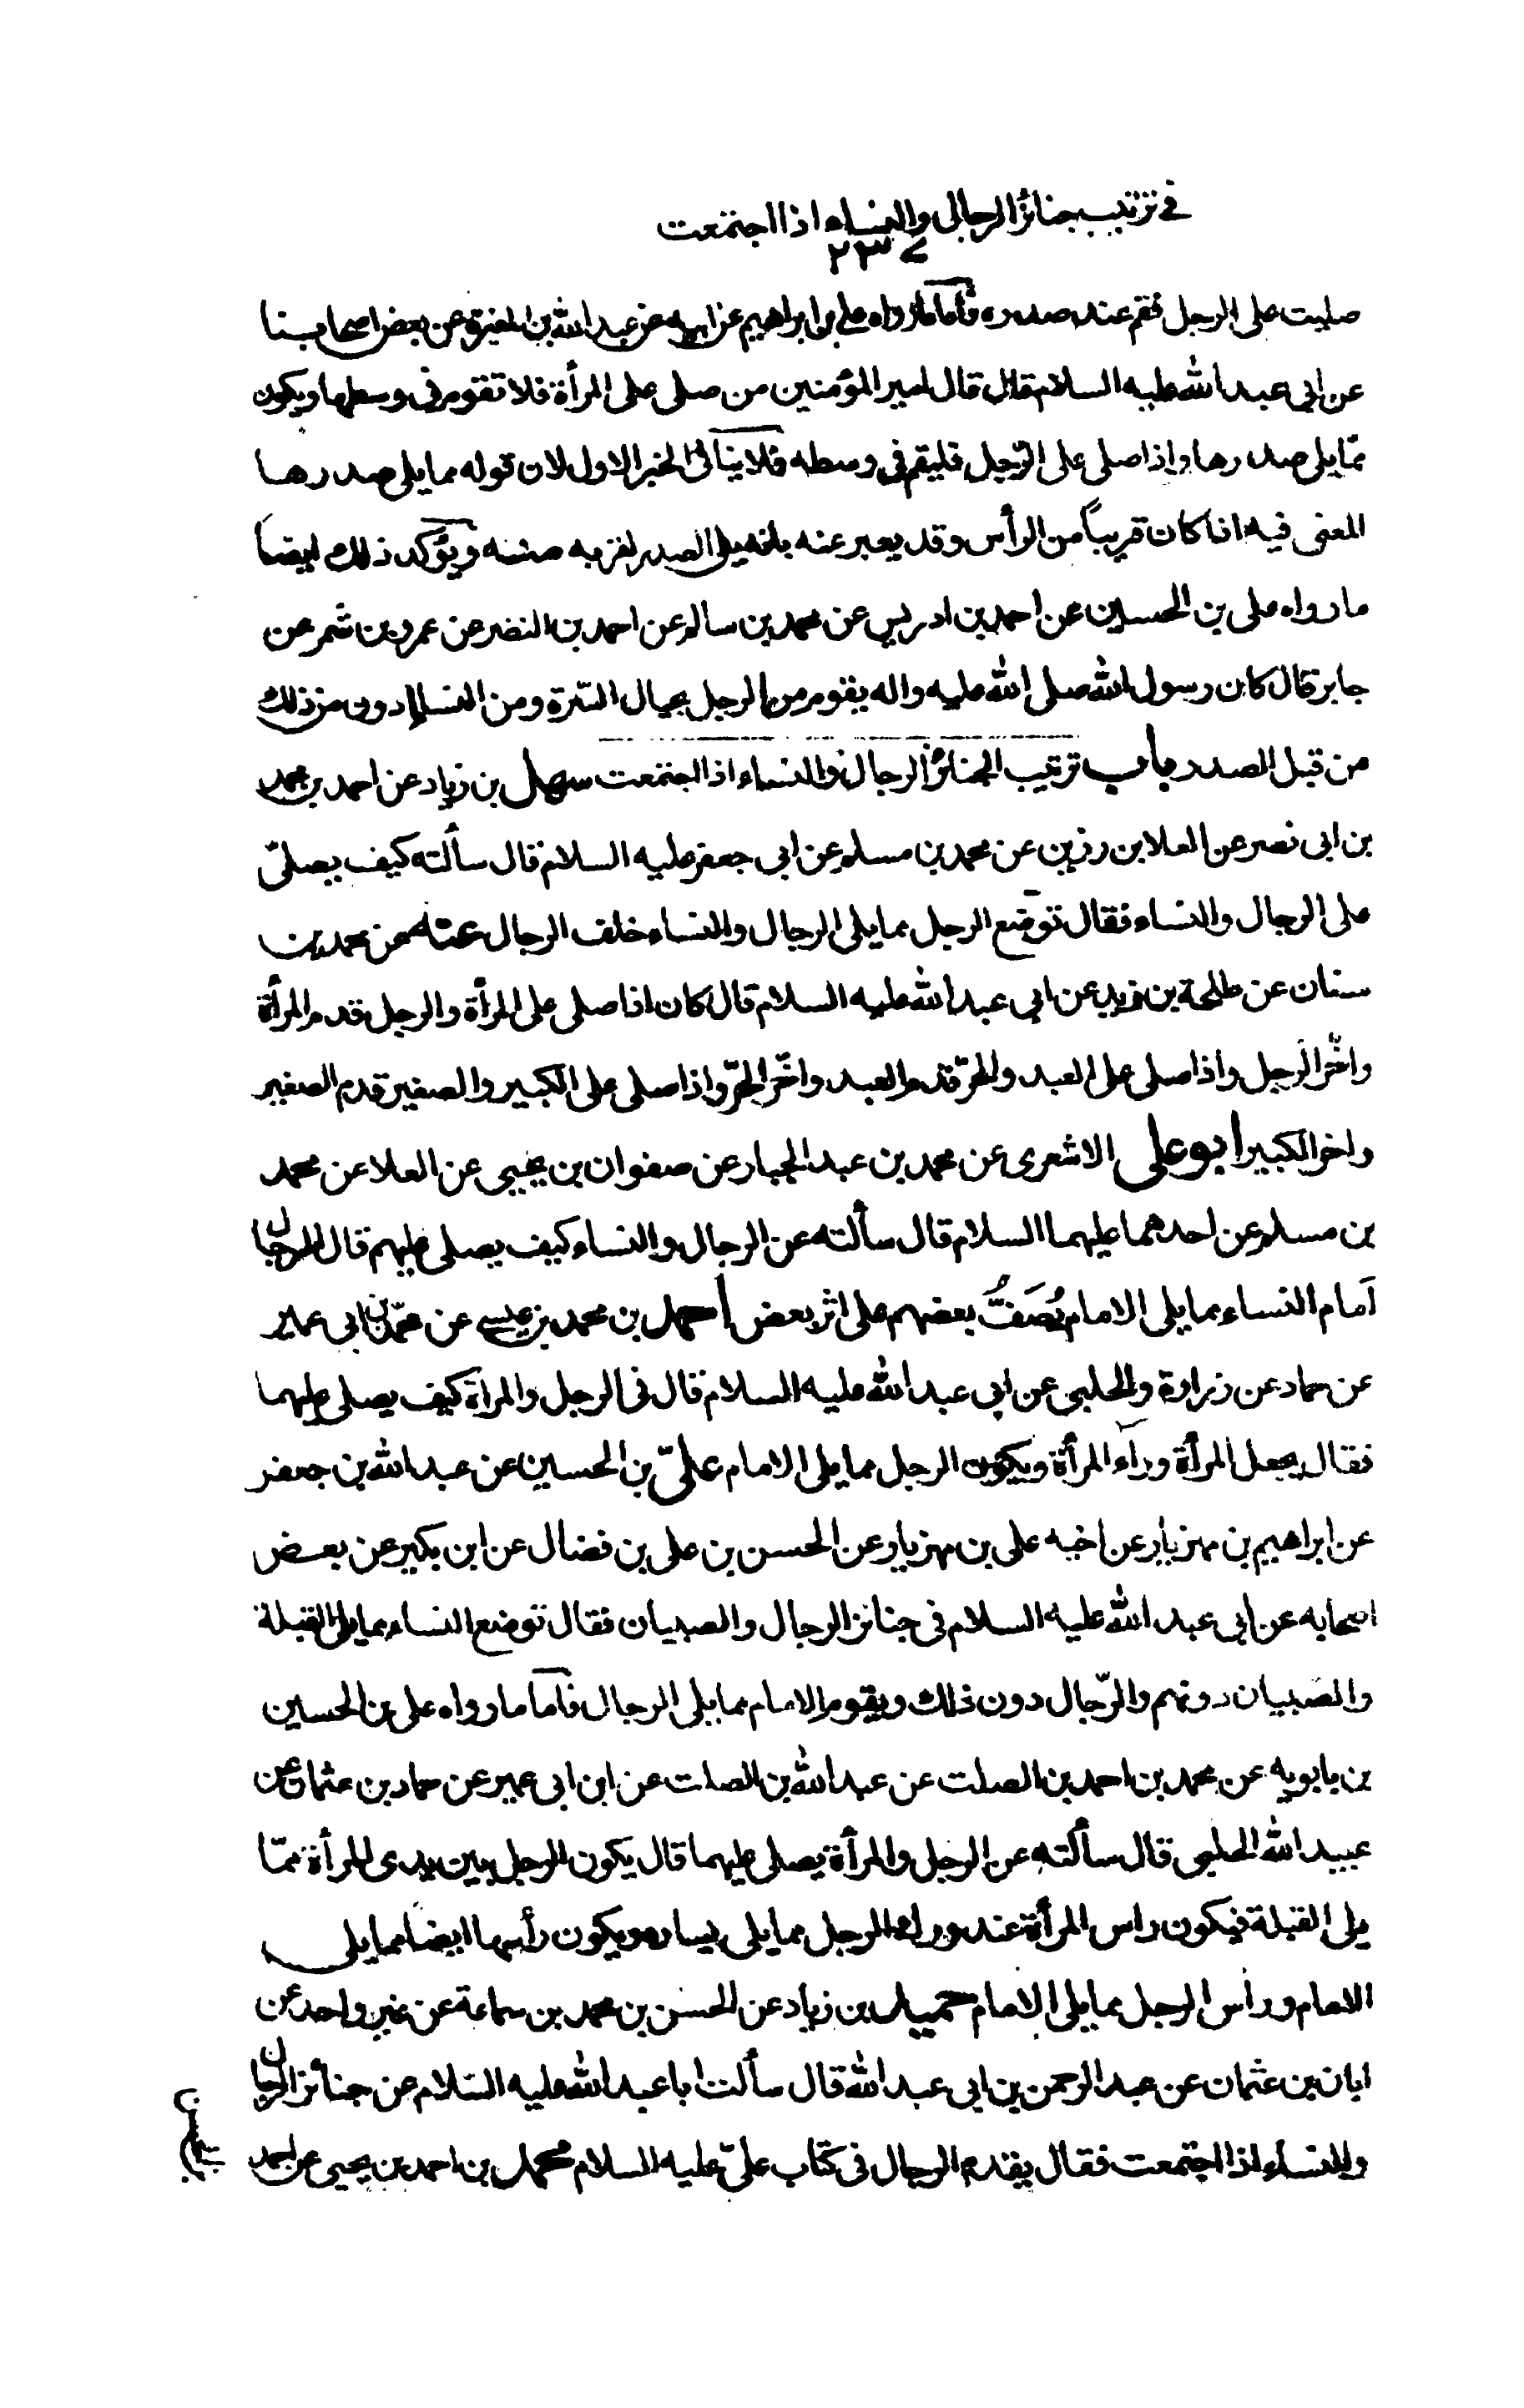 في ترتيب جنائز الرجال والنساء اذا اجتمعت
٢٣٧
صليت على الرجل فقم عند صدره فأما ما رواه علي بن ابراهيم عن ابيه عن عبد الله بن المغيرة عن بعض اصحابنا
عن ابي عبد الله عليه السلام قال قال امير المؤمنين من صلى على المرأة فلا تقوم في وسطها ويكون
ممّا يلي صدرها واذا صلى على الرّجل فليقم في وسطه فلا ينافي الخبر الاول لان قوله مما يلي صدرها
المعنى فيه اذا كان قريباً من الرأس وقد يعبر عنه بانه يلي الصدر لقربه منه ويؤكد ذلك ايضا
ما رواه علي بن الحسين عن احمد بن ادريس عن محمد بن سالم عن احمد بن النضر عن عمرو بن شمر عن
جابر قال كان رسول الله صلى الله عليه واله يقوم من الرجل بحيال السّرة ومن النساء ادون من ذلك
من قبل الصدر باب ترتيب الجنائز الرجال والنساء اذا اجتمعت سهل بن زياد عن احمد بن محمد
بن ابي نصر عن العلا بن رزين عن محمد بن مسلم عن ابي جعفر عليه السلام قال سألته كيف يصلّى
على الرجال والنساء فقال توضع الرجل مما يلي الرجال والنساء خلف الرجال عنه عن محمد بن
سنان عن طلحة بن زيد عن ابي عبد الله عليه السلام قال كان اذا صلى على المرأة والرجل قدم المرأة
واخّر الرجل واذا صلى على العبد والحرّ قدم العبد واخّر الحرّ واذا صلى على الكبير والصغير قدم الصغير
واخر الكبير ابو علي الاشعري عن محمد بن عبد الجبار عن صفوان بن يحيى عن العلا عن محمد
بن مسلم عن احدهما عليهما السلام قال سألته عن الرجال والنساء كيف يصلى عليهم قال الرجال
اَمام النساء مما يلي الامام يُصَفُّ بعضهم على اثر بعض احمد بن محمد بن عيسى عن محمّد بن ابي عمير
عن حماد عن زرارة والحلبي عن ابي عبد الله عليه السلام قال في الرجل والمراة كيف يصلى عليهما
فقال يجعل المرأة وراء المرأة ويكون الرجل مما يلي الامام عليّ بن الحسين عن عبد الله بن جعفر
عن ابراهيم بن مهزيار عن اخيه علي بن مهزيار عن الحسن بن علي بن فضال عن ابن بكير عن بعض
اصحابه عن ابي عبد الله عليه السلام في جنائز الرجال والصبيان فقال توضع النساء مما يلي القبلة
والصبيان دونهم والرّجال دون ذلك ويقوم الامام مما يلي الرجال فأما ما رواه علي بن الحسين
بن بابويه عن محمد بن احمد بن الصلت عن عبد الله بن الصلت عن ابن ابي عمير عن حماد بن عثمان عن
عبيد الله الحلبي قال سألته عن الرجل والمرأة يصلى عليهما قال يكون الرجل بين يدى المرأة ممّا
يلي القبلة فيكون راس المرأة عند وراء الرجل مما يلي يساره ويكون رأسها ايضا مما يلي
الامام وراس الرجل مما يلي الامام حميد بن زياد عن الحسن بن محمد بن سماعة عن غير واحد عن
ابان بن عثمان عن عبد الرحمن بن ابي عبد الله قال سألت ابا عبد الله عليه السّلام عن جنائز الرجال
والنساء اذا اجتمعت فقال يقدم الرجال في كتاب عليّ عليه السلام محمد بن احمد بن يحيى عن احمد